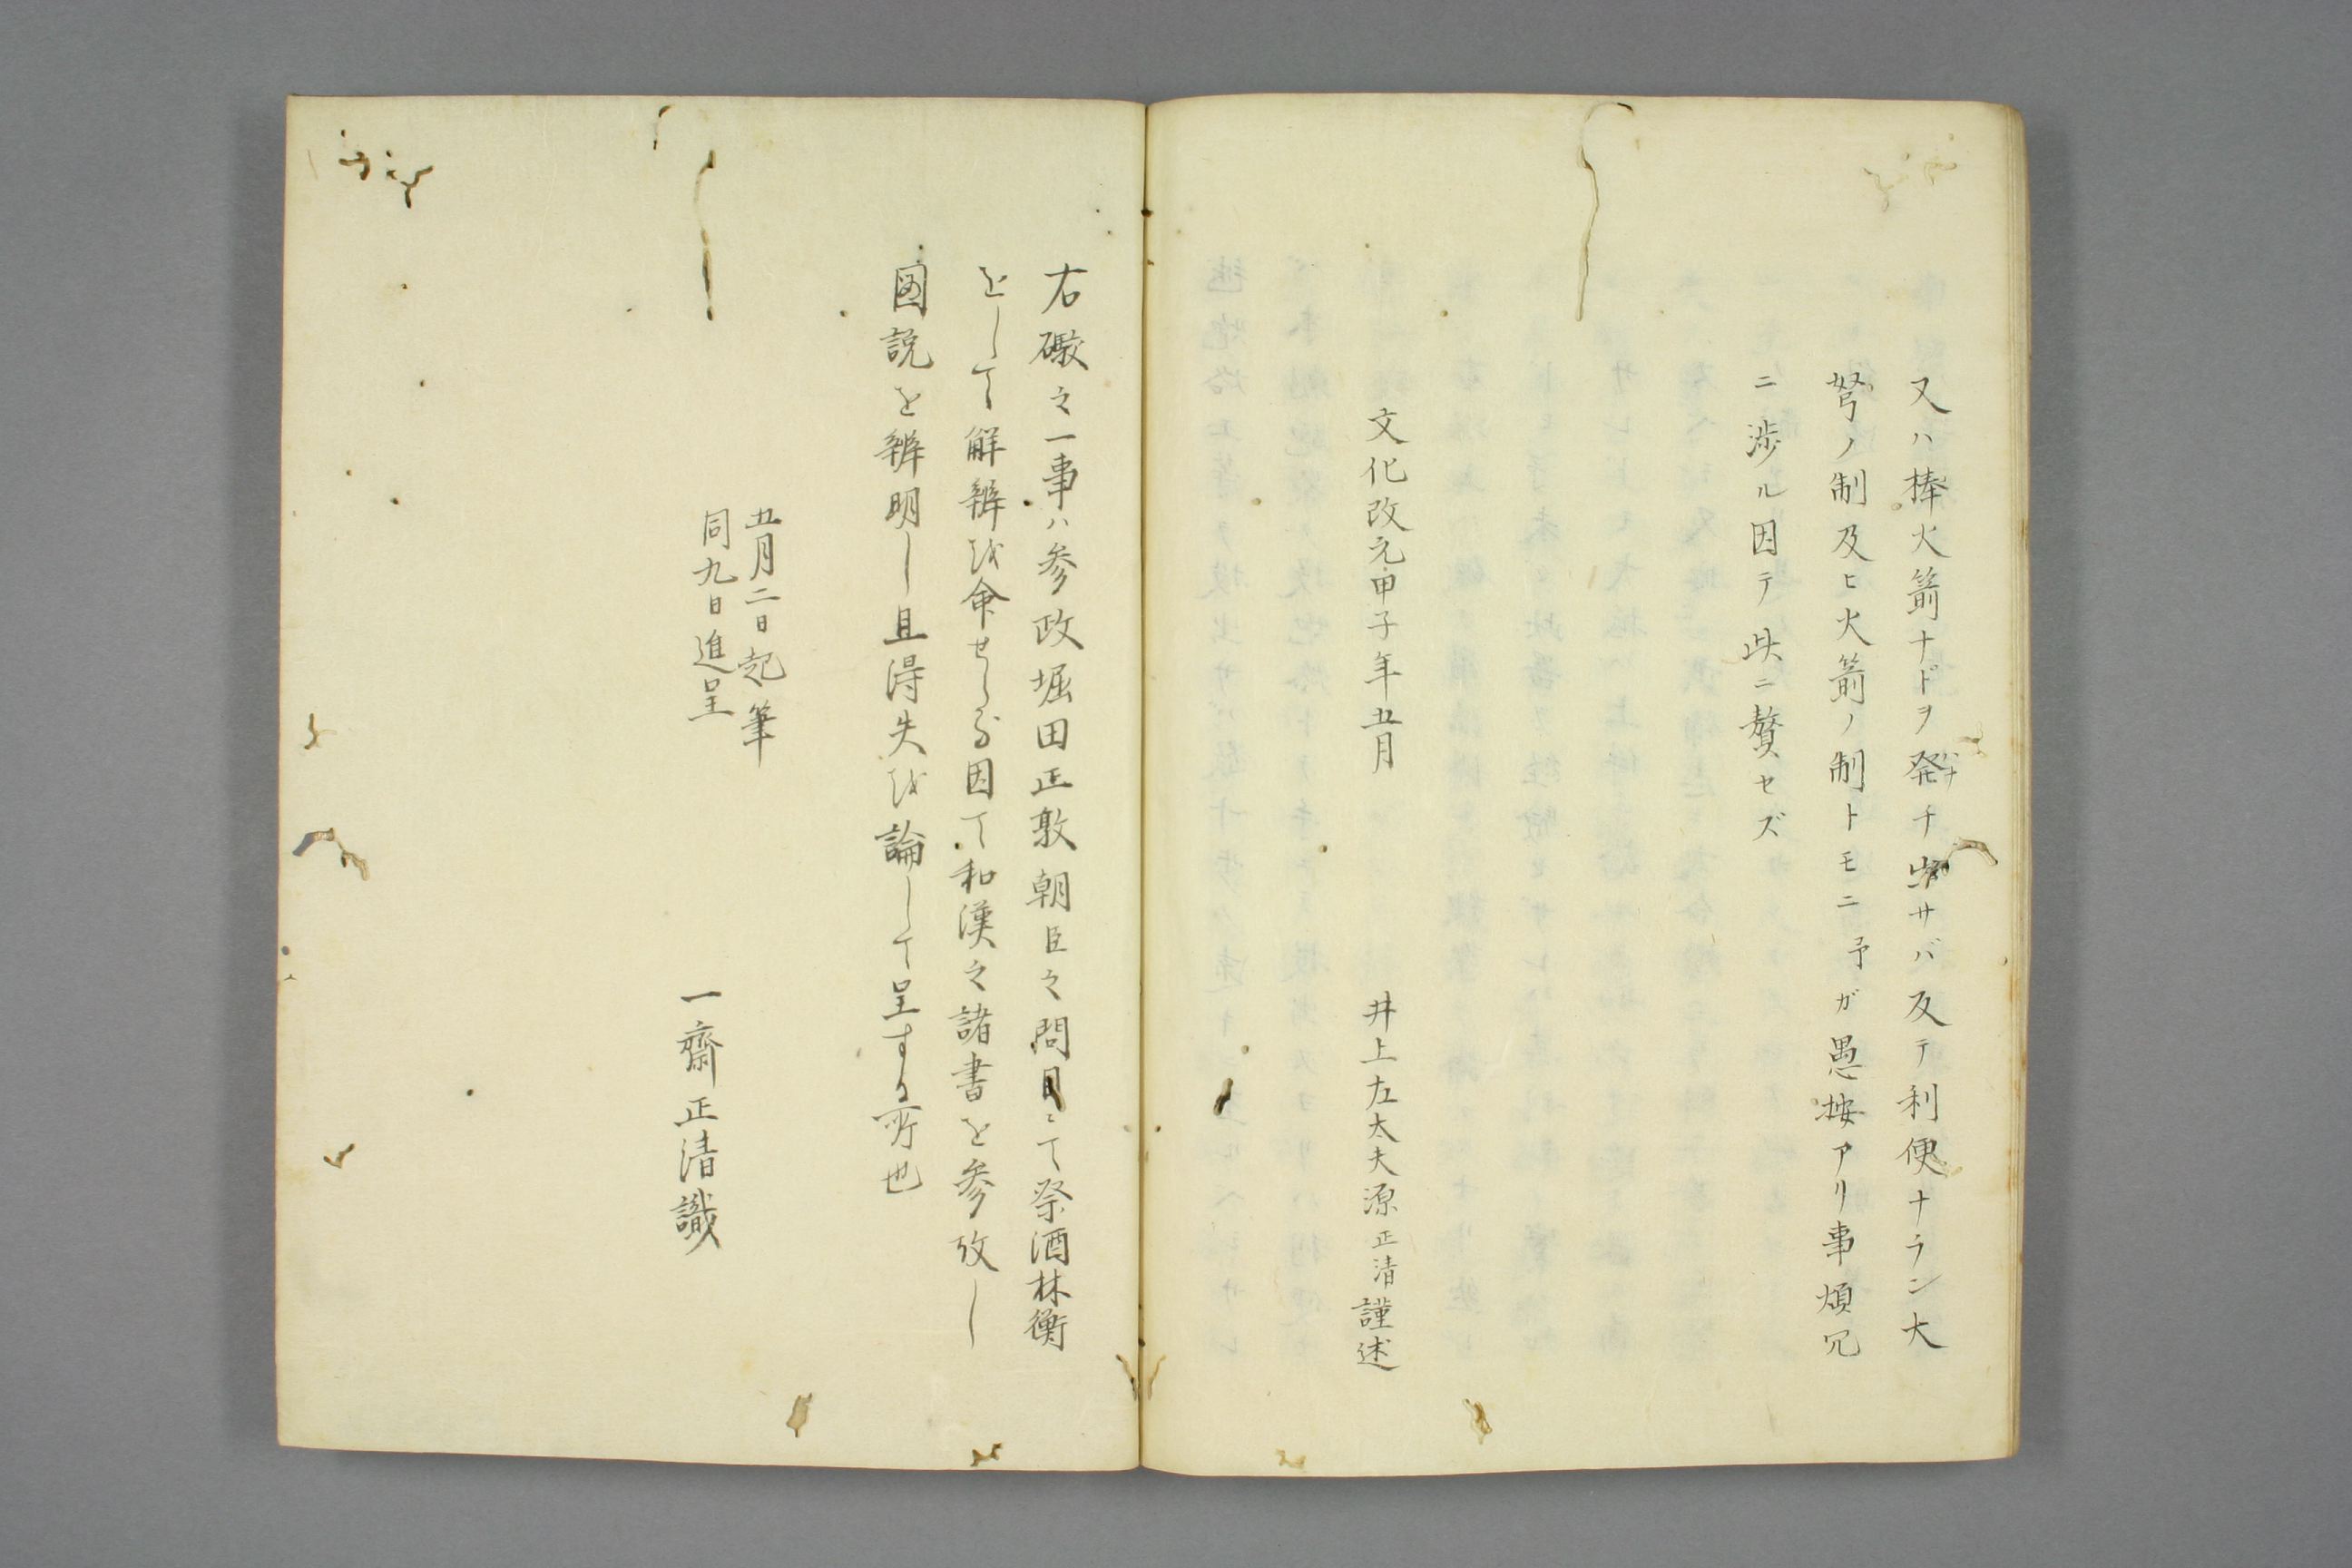 又ハ棒火箭ナドヲ発チ出サバ反テ利便ナラン大
弩ノ制及ヒ火箭ノ制トモニ予ガ愚按アリ事煩冗
ニ渉ル因テ此ニ贅セズ
文化改元甲子年五月
井上左太夫源正清謹述
右礮之一事ハ参政堀田正敦朝臣之問目にて祭酒林衡
をして解辨を命せらる因て和漢之諸書を参攷し
図説を辨明し且得失を論して呈する所也
五月二日起筆
同九日進呈
一齋正清識